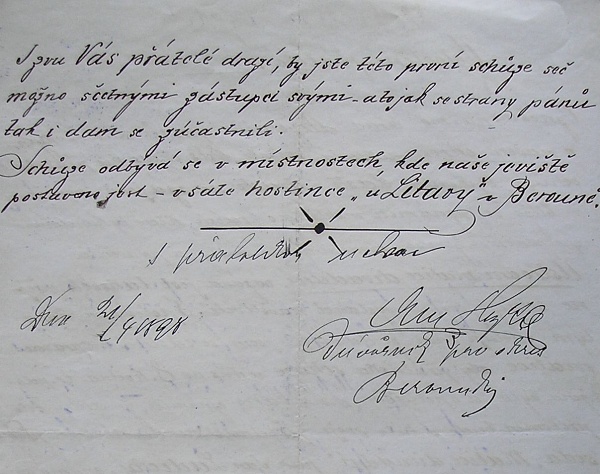 I zvu Vás přátelé drazí, by jste této první schůze seč
možno sčetnými zástupci svými - a to jak se strany pánů
tak i dam se zúčastnili.
Schůze odbývá se v místnostech, kde naše jeviště
postaveno jest - v sále hostince „u Litavy" v Berouně.
S přátelským
Dne 21/4 1898
Důvěrník pro okres
Berounský